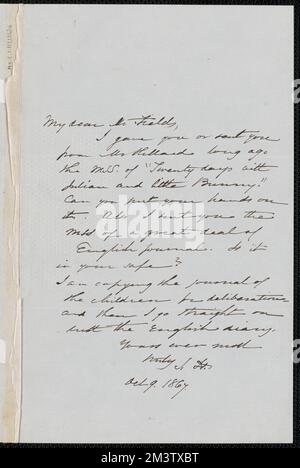 My dear Mr Fields,
I gave you or sent you
from Mr Hillard long ago
the MSS. of "Twenty days with
Julian and little Bunny."
Can you put your hands on
it. Also I sent you the
MSS of a great deal of
English Journal. Is it
in your safe?
I am copying the journal of
the children for deliberation
and then I go straight on
with the English diary.
Yours ever most
truly S. H.
Oct 9. 1867.
alamy
Image ID: 2M3TXBT
www.alamy.com